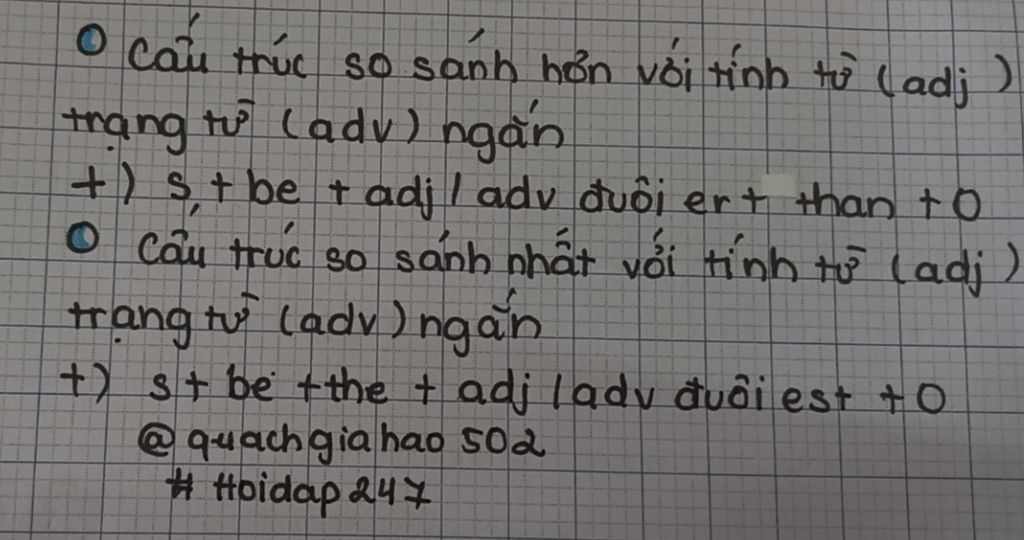 Cấu trúc so sánh hơn với tính từ (adj)
trạng từ (adv) ngắn
+) s + be + adj / adv đuôi er + than + O
Cấu trúc so sánh nhất với tính từ (adj)
trạng từ (adv) ngắn
+) s + be + the + adj / adv đuôi est + O
@ quachgiahao502
# Hoidap247